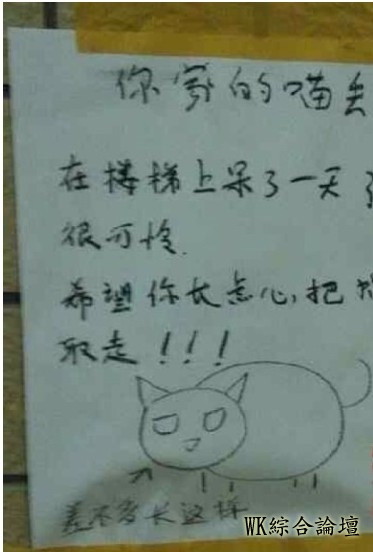 你家的喵丢
在楼梯上呆了一天了
很可怜.
希望你长点心,把
取走!!!
差不多长这样
WK綜合論壇